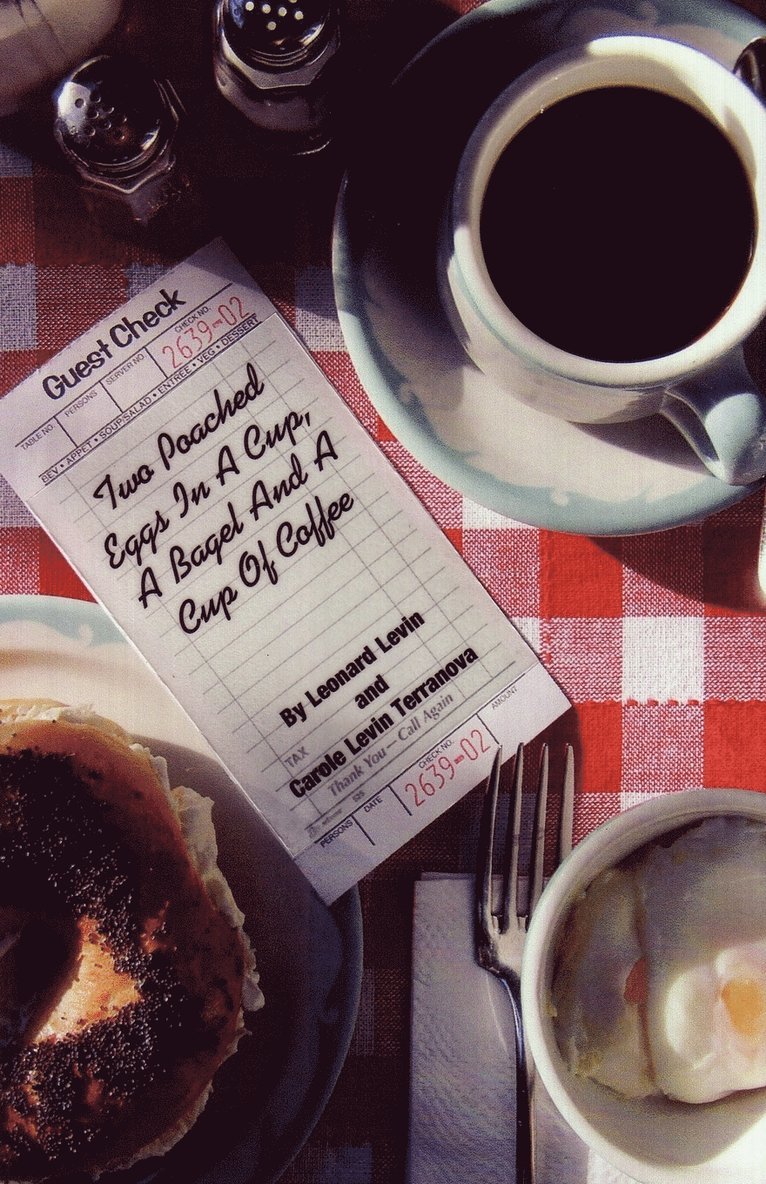 Guest Check
TABLE NO. PERSONS SERVER NO. CHECK NO.
2639-02
BEV • APPET • SOUP/SALAD • ENTREE • VEG • DESSERT
Two Poached
Eggs In A Cup,
A Bagel And A
Cup Of Coffee
By Leonard Levin
and
Carole Levin Terranova
TAX
Thank You—Call Again
PERSONS DATE CHECK NO. AMOUNT
2639-02